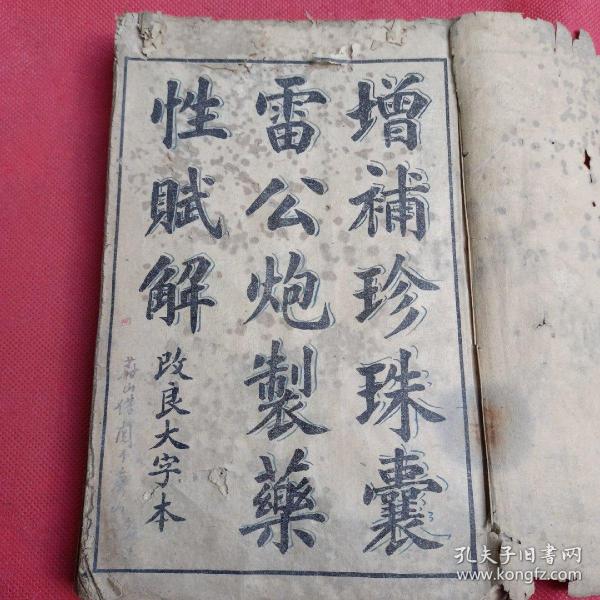 增補珍珠囊
雷公炮製藥
性賦解
改良大字本
孔夫子旧书网
www.kongfz.com